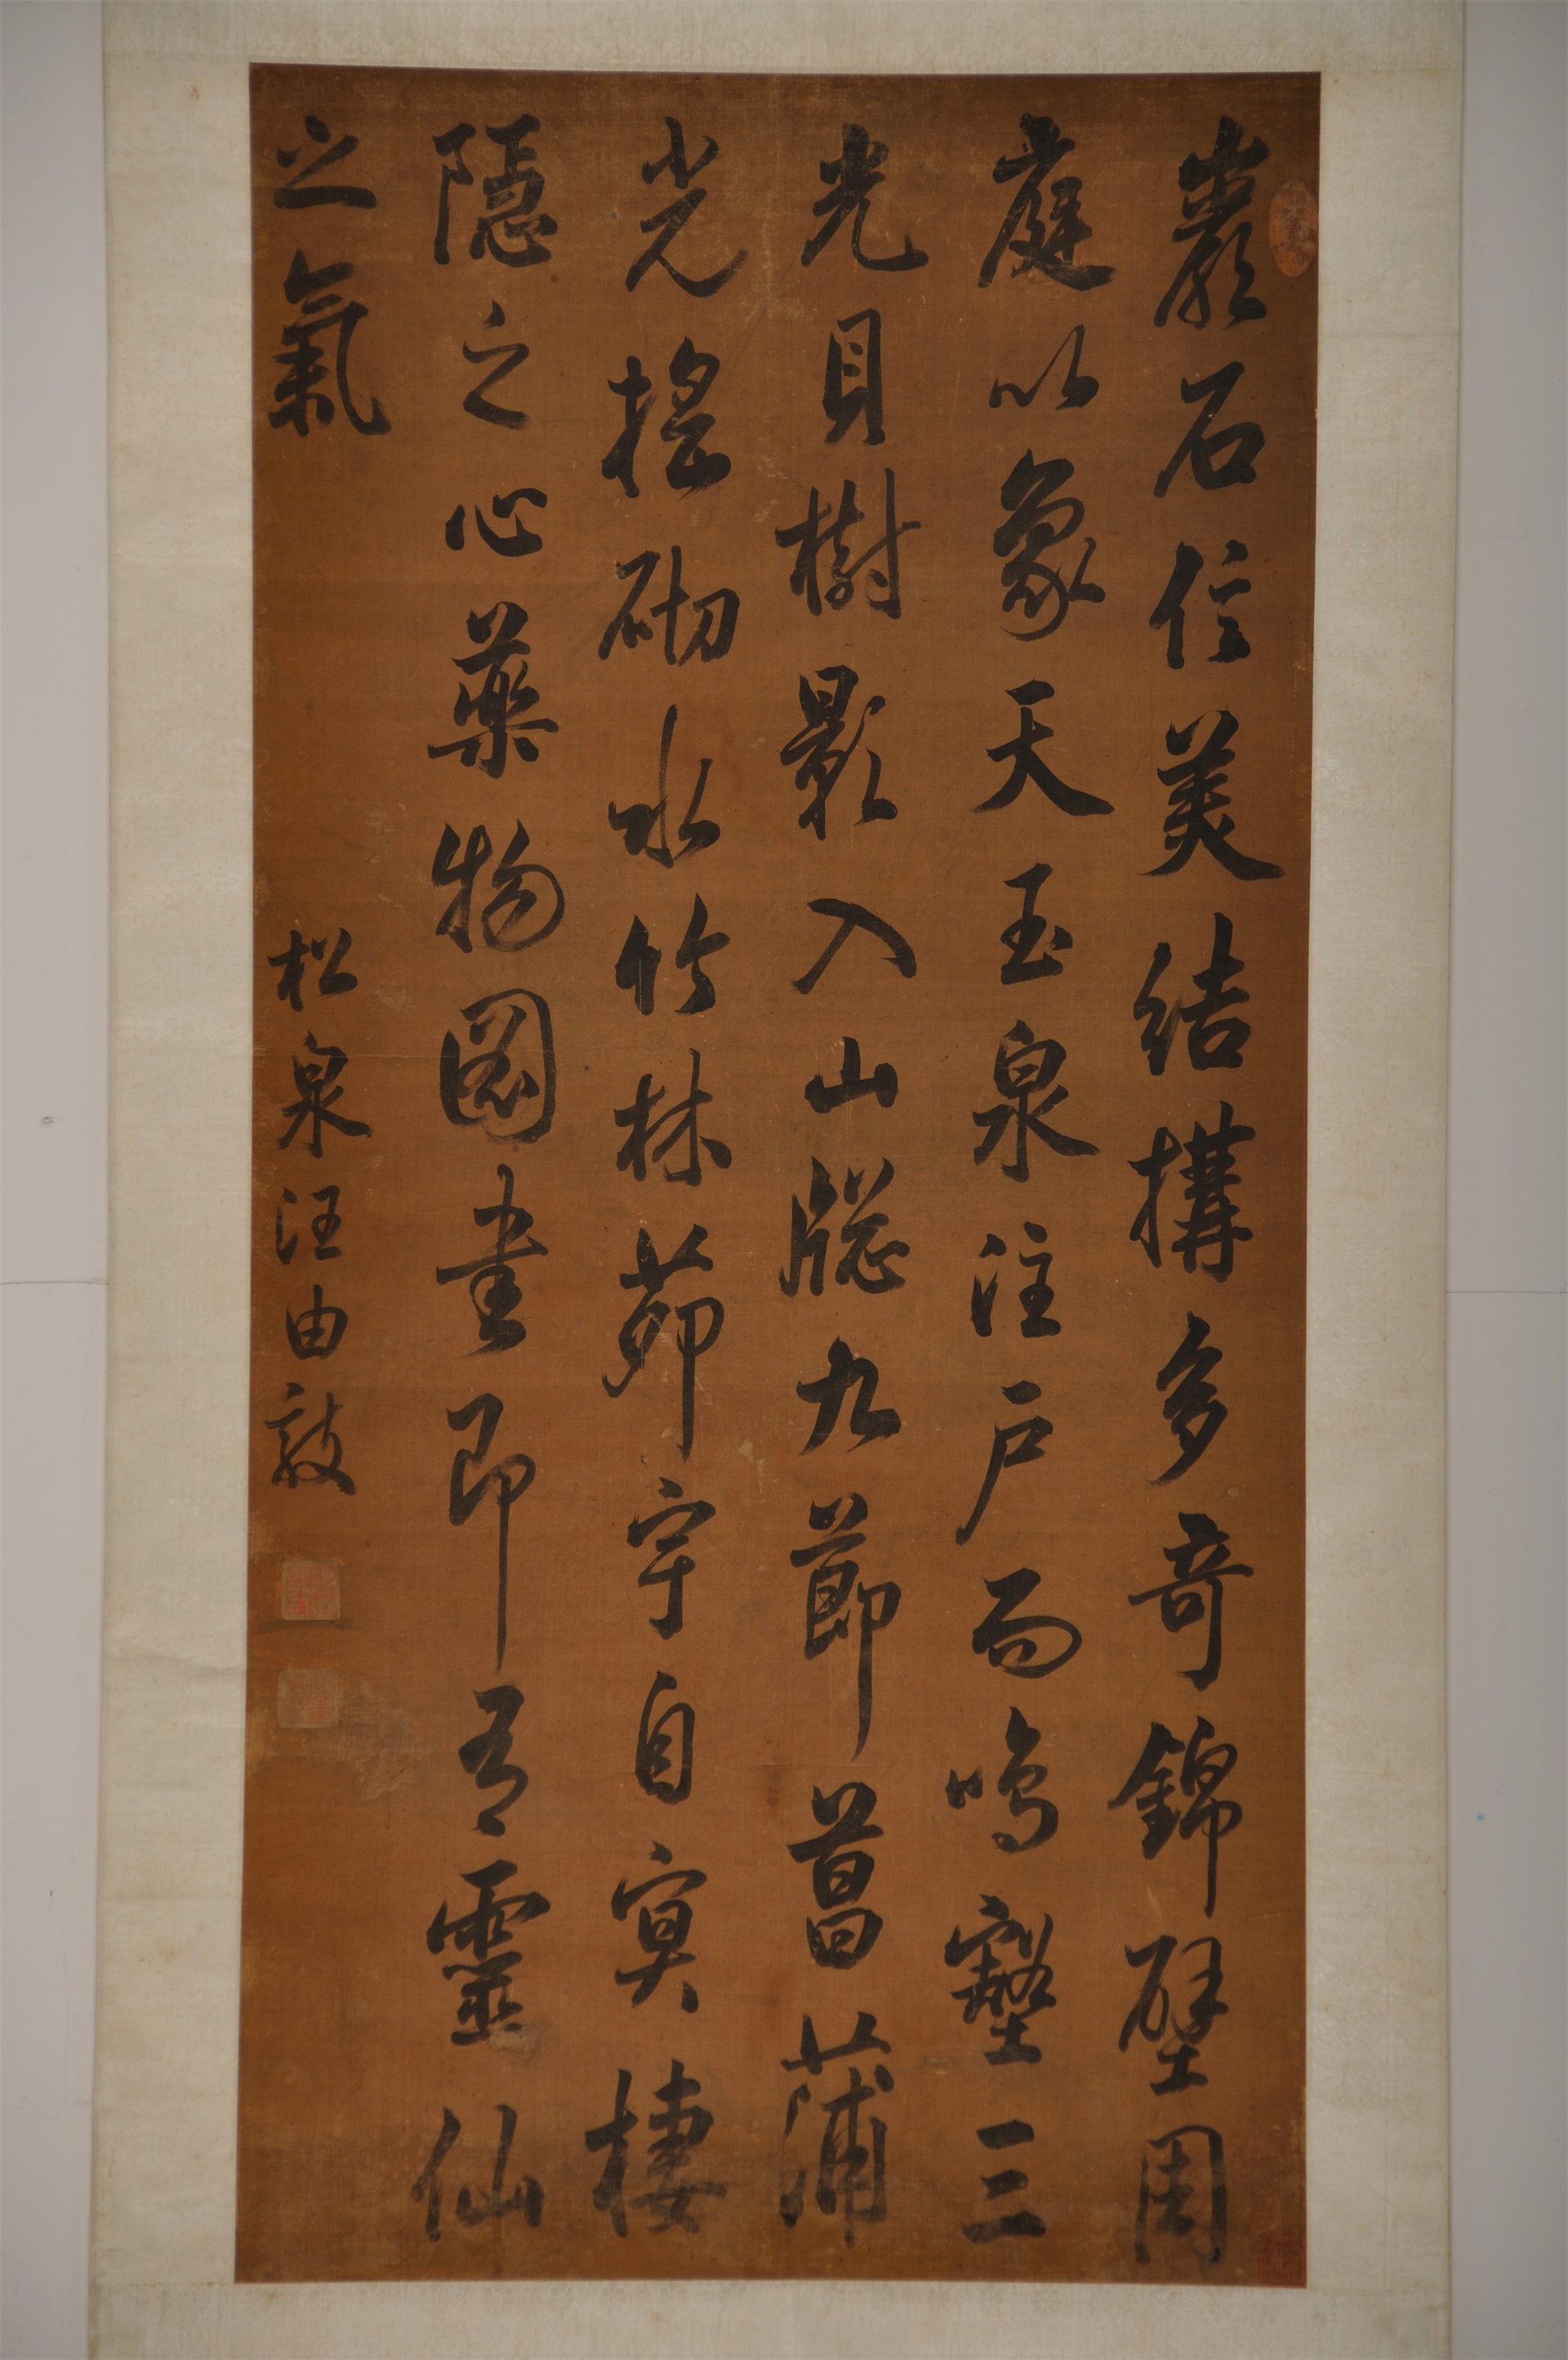 巖石信美結構多奇錦壁周
庭以象天玉泉注戶而鳴壑三
光貝樹影入山牕九節菖蒲
光搖砌水竹林茆宇自冥棲
隱之心藥物圖書即有靈仙
之氣
松泉汪由敦